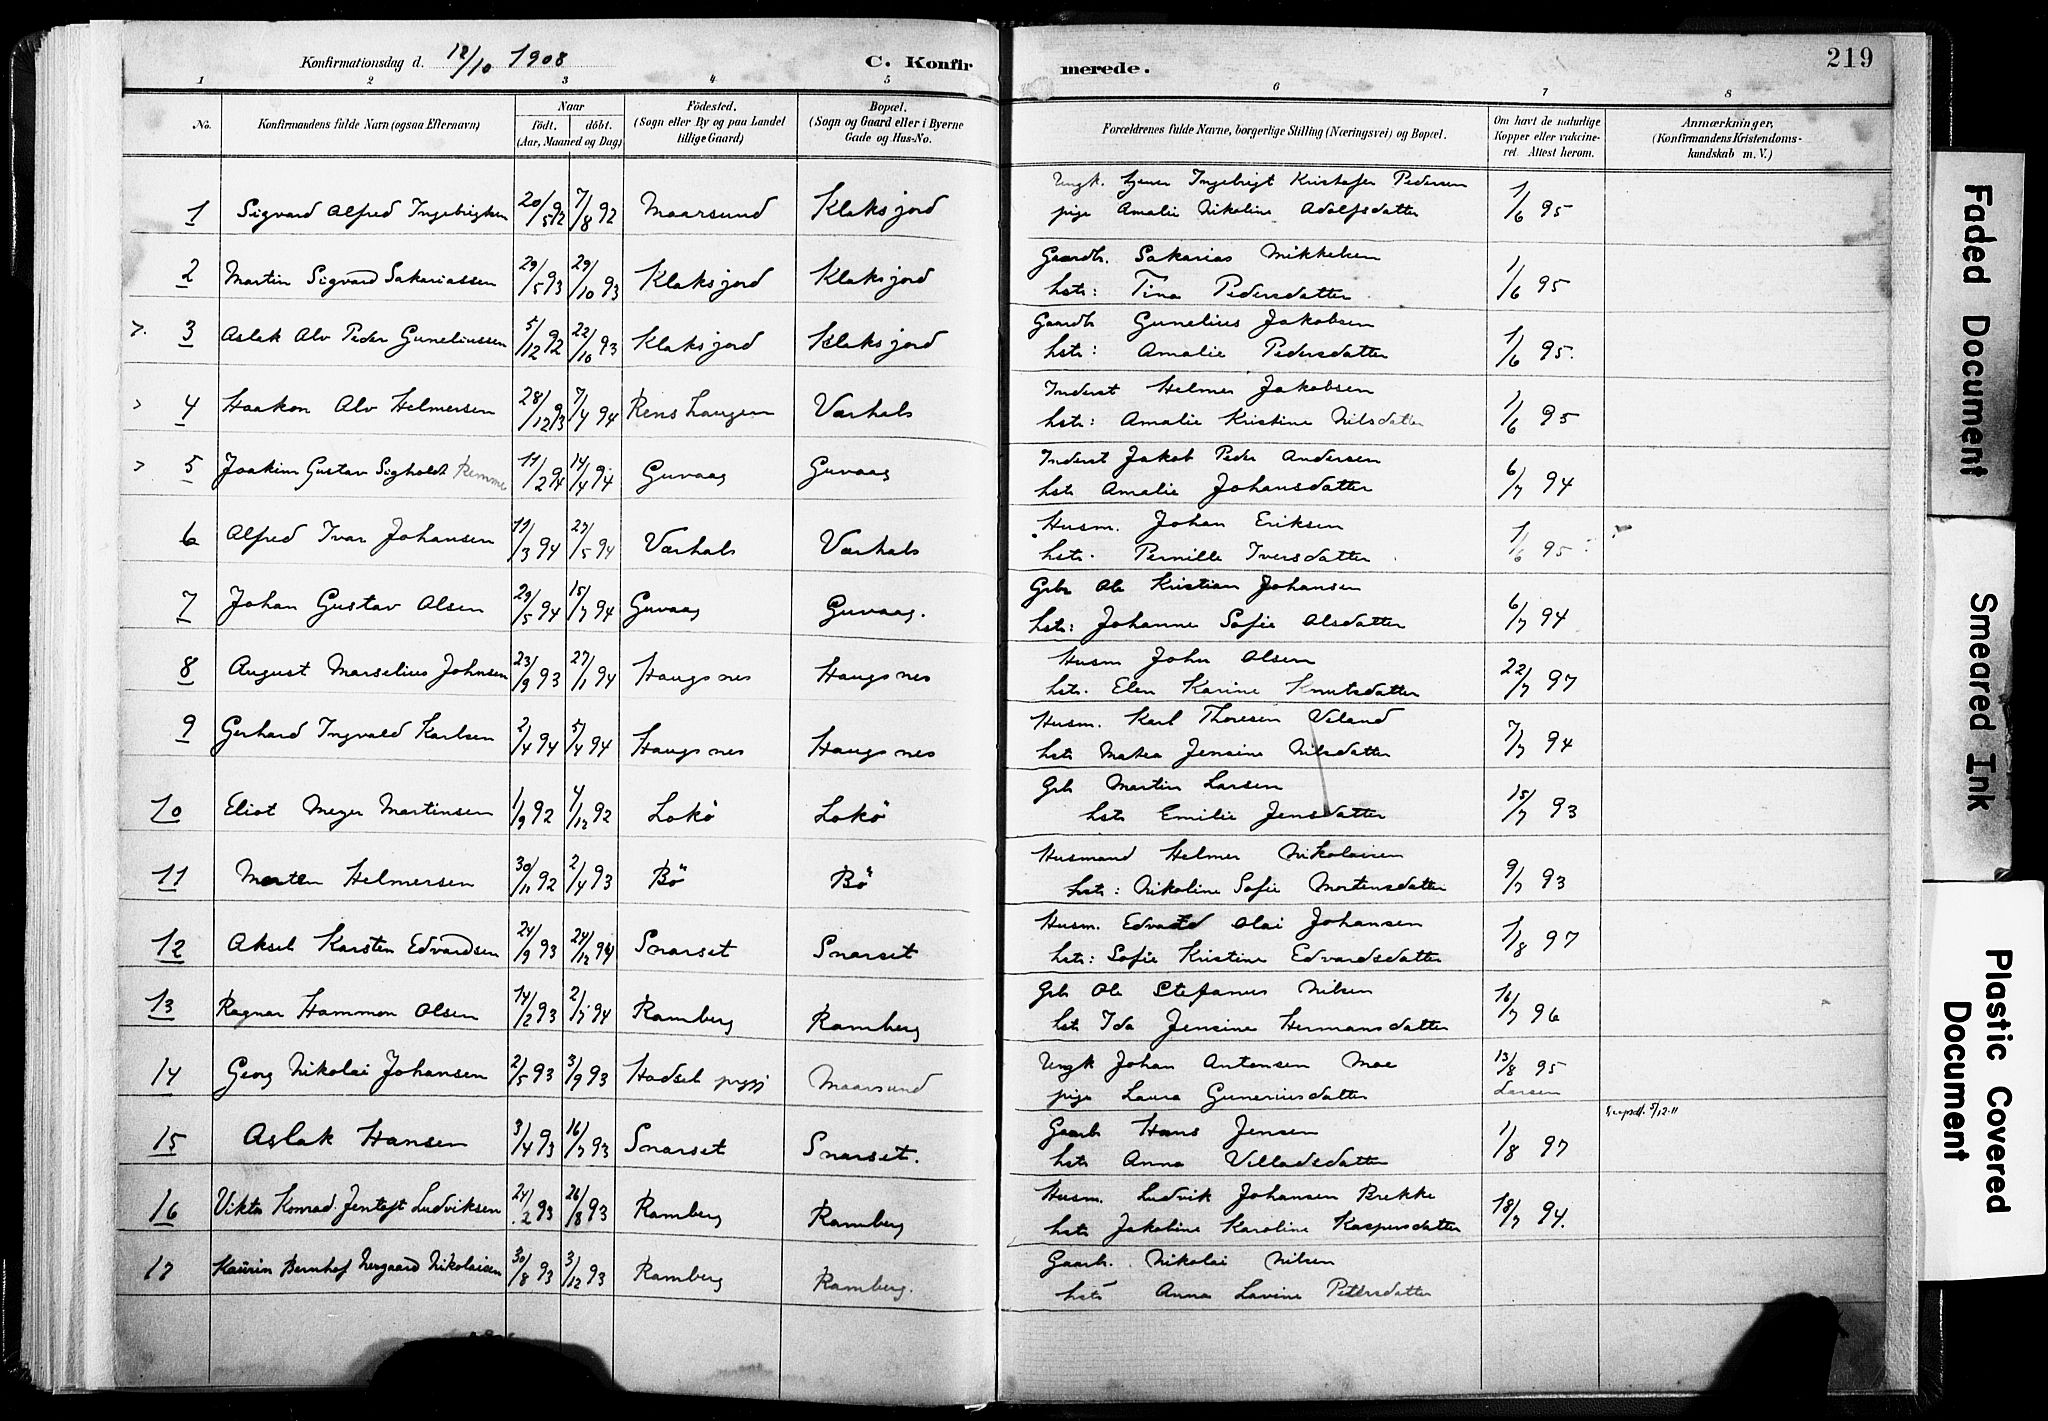 Konfirmationsdag d. 12/10 1908
C. Konfirmerede.
219
1 2 3 4 5 6 7 8
No.
Konfirmandens fulde Navn (ogsaa Efternavn)
Naar
født. døbt.
(Aar, Maaned og Dag)
Fødested.
(Sogn eller By og paa Landet
tillige Gaard)
Bopæl.
(Sogn og Gaard eller i Byerne
Gade og Hus-No.
Forældrenes fulde Navne, borgerlige Stilling (Næringsvei) og Bopæl.
Om havt de naturlige
Kopper eller vakcine-
ret. Attest herom.
Anmærkninger,
(Konfirmandens Kristendoms-
kundskab m. V.)
1 Sigvard Alfred Ingebrigtsen 20/5 92 7/8 92 Maarsund Klaksjord Ungk. Ingebrigt Kristofer Pedersen 1/6 95
pige Amalie Nikoline Adolfsdatter
2 Martin Sigvard Sakariassen 29/5 93 29/10 93 Klaksjord Klaksjord Gaardb. Sakarias Mikkelsen 1/6 95
hstr: Tina Pedersdatter
3 Aslak Alv Peder Guneliussen 5/12 92 22/10 93 Klaksjord Klaksjord Gaardb Gunelius Jakobsen 1/6 95.
hstr: Amalie Pedersdatter
4 Haakon Alv Helmersen 28/12 93 7/4 94 Værhals Inderst Helmer Jakobsen 1/6 95
hstr: Amalie Kristine Nilsdatter
5 Joakim Gustav Sigholdt 11/2 94 14/4 94 Guvaag Guvaag Inderst Jakob Peder Andersen 6/7 94
hstr Amalie Johansdatter
6 Alfred Ivar Johansen 11/3 94 27/5 94 Værhals Værhals Husm. Johan Eriksen 1/6 95
hstr. Pernille Iversdatter
7 Johan Gustav Olsen 29/5 94 15/7 94 Guvaag Guvaag. Grbr Ole Kristian Johansen 6/7 94
hstr: Johanne Sofie Olsdatter
8 August Marselius Johnsen 23/9 93 27/1 94 Haugsnes Haugsnes Husm John Olsen 22/7 97
hstr. Elen Karine Knutsdatter
9 Gerhard Ingvald Karlsen 2/4 94 5/4 94 Haugsnes Haugsnes Husm. Karl Thoresen Veland 7/7 94
hstr Matea Jensine Nilsdatter
10 Eliot Meyer Martinsen 1/9 92 4/12 92 Lokø Lokø Grb Martin Larsen 15/7 93
hstr Emilie Jensdatter
11 Morten Helmersen 30/11 92 2/4 93 Bø Bø Husmand Helmer Nikolaisen 9/7 93
hstr: Nikoline Sofie Mortensdatter
12 Aksel Karsten Edvardsen 24/9 93 24/12 94 Snarset Snarset Husm. Edvard Olai Johansen 1/8 97
hstr: Sofie Kristine Edvardsdatter
13 Ragnar Hammon Olsen 14/2 93 2/7 94 Ramberg Ramberg Grb Ole Stefanus Nilsen 16/7 96
hstr Ida Jensine Hermansdatter
14 Georg Nikolai Johansen 2/5 93 3/9 93 Hadsel prgj Maarsund Ungk Johan Antonsen Moe 13/8 95
pige Laura Guneriusdatter Larsen
15 Aslak Hansen 3/4 93 16/7 93 Snarset Snarset. Gaarb Hans Jensen 1/8 97 5/12 11
hstr Anna Villadsdatter
16 Viktor Konrad Jentoft Ludviksen 24/2 93 26/8 93 Ramberg Ramberg Husm. Ludvik Johansen Brekke 18/7 94.
hstr Jakobine Karoline Kaspersdatter
17 Kaurin Bernhof Nergaard Nikolaisen 30/8 93 3/12 93 Ramberg Ramberg. Gaarb. Nikolai Nilsen
hstr Anna Lavine Petersdatter
Faded Document
Smeared Ink
Plastic Covered
Document